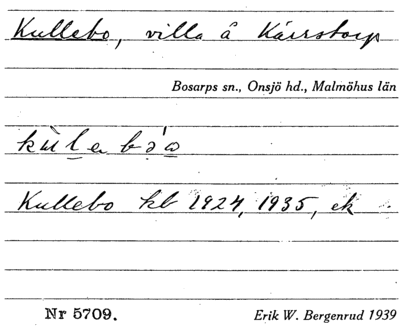 Kullebo, villa å Kärrstorp
Bosarps sn., Onsjö hd., Malmöhus län
Kullebo kb 1924, 1935, ek
Nr 5709.
Erik W. Bergenrud 1939